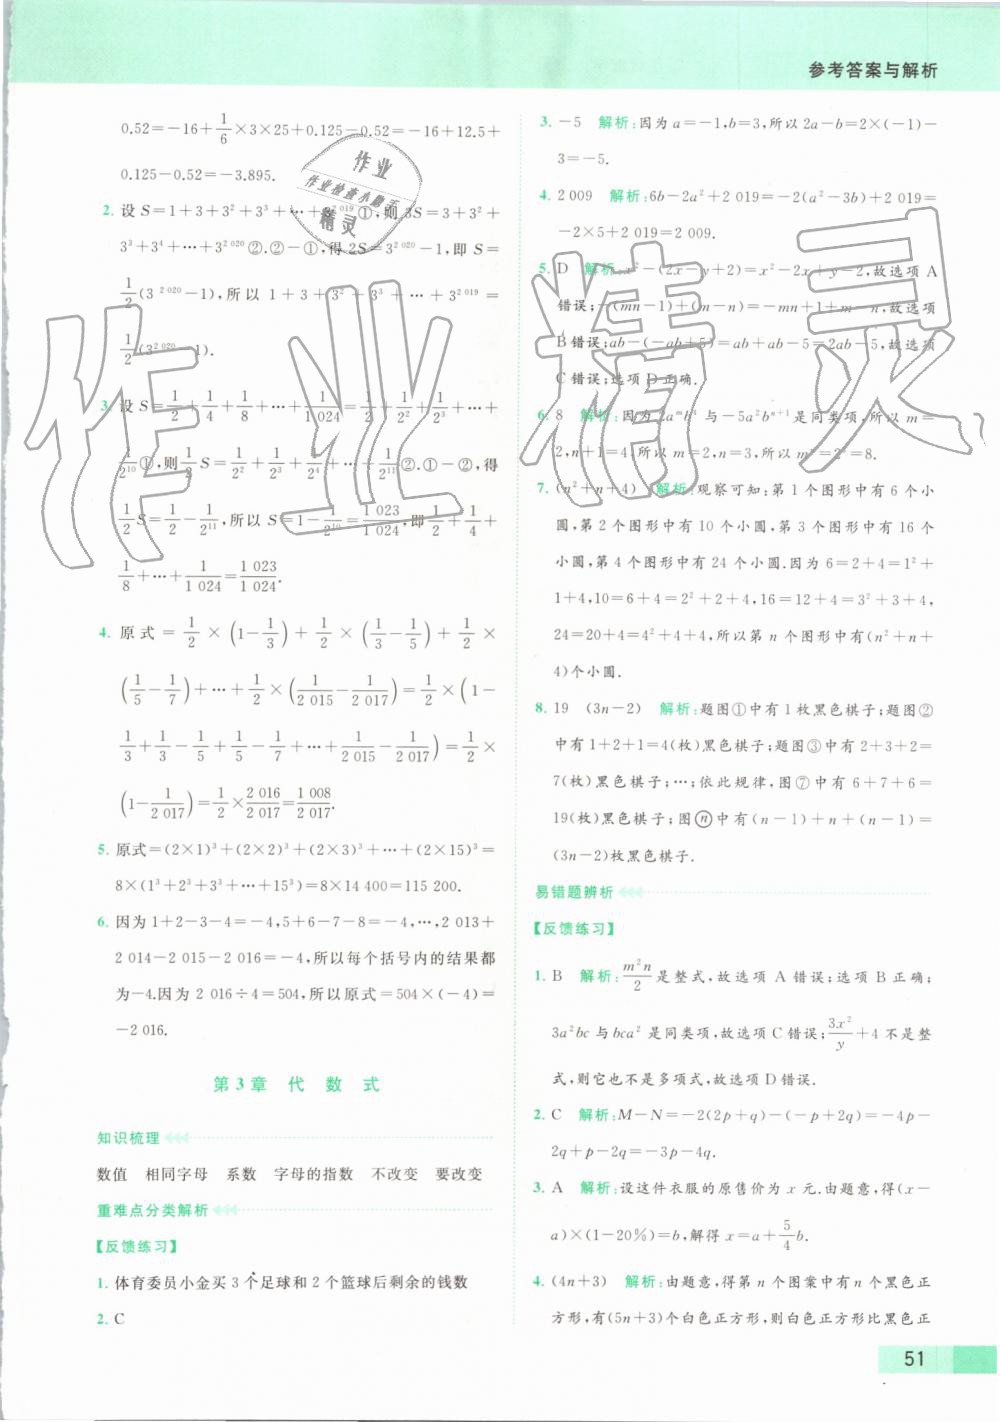 参考答案与解析
0.52=-16+1/6×3×25+0.125-0.52=-16+12.5+
0.125-0.52=-3.895.
2. 设 S=1+3+3²+3³+⋯+3^2 019①,则 3S=3+3²+
3³+3⁴+⋯+3^2 020②.②-①,得 2S=3^2 020-1,即 S=
1/2(3^2 020-1),所以 1+3+3²+3³+⋯+3^2 019=
1/2(3^2 020-1).
3. 设 S=1/2+1/4+1/8+⋯+1/1 024=1/2+1/2²+1/2³+⋯+
1/2^10①,则1/2S=1/2²+1/2³+1/2⁴+⋯+1/2^11②.①-②,得
1/2S=1/2-1/2^11,所以 S=1-1/2^10=1 023/1 024,即1/2+1/4+
1/8+⋯+1/1 024=1 023/1 024.
4. 原式=1/2×(1-1/3)+1/2×(1/3-1/5)+1/2×
(1/5-1/7)+⋯+1/2×(1/2 015-1/2 017)=1/2×(1-
1/3+1/3-1/5+1/5-1/7+⋯+1/2 015-1/2 017)=1/2×
(1-1/2 017)=1/2×2 016/2 017=1 008/2 017.
5. 原式=(2×1)³+(2×2)³+(2×3)³+⋯+(2×15)³=
8×(1³+2³+3³+⋯+15³)=8×14 400=115 200.
6. 因为 1+2-3-4=-4,5+6-7-8=-4,⋯,2 013+
2 014-2 015-2 016=-4,所以每个括号内的结果都
为-4.因为 2 016÷4=504,所以原式=504×(-4)=
-2 016.
第 3 章 代 数 式
知识梳理
数值 相同字母 系数 字母的指数 不改变 要改变
重难点分类解析
【反馈练习】
1. 体育委员小金买 3 个足球和 2 个篮球后剩余的钱数
2. C
3. -5 解析:因为 a=-1,b=3,所以 2a-b=2×(-1)-
3=-5.
4. 2 009 解析:6b-2a²+2 019=-2(a²-3b)+2 019=
-2×5+2 019=2 009.
5. D 解析:x²-(2x-y+2)=x²-2x+y-2,故选项 A
错误;-(mn-1)+(m-n)=-mn+1+m-n,故选项
B错误;ab-(-ab+5)=ab+ab-5=2ab-5,故选项
C错误;选项 D正确.
6. 8 解析:因为 2a^m b⁴ 与 -5a²b^(n+1) 是同类项,所以 m=
2,n+1=4,所以 m=2,n=3,所以 m^n=2³=8.
7. (n²+n+4) 解析:观察可知:第 1 个图形中有 6 个小
圆,第 2 个图形中有 10 个小圆,第 3 个图形中有 16 个
小圆,第 4 个图形中有 24 个小圆.因为 6=2+4=1²+
1+4,10=6+4=2²+2+4,16=12+4=3²+3+4,
24=20+4=4²+4+4,所以第 n 个图形中有(n²+n+
4)个小圆.
8. 19 (3n-2) 解析:题图①中有 1 枚黑色棋子;题图②
中有 1+2+1=4(枚)黑色棋子;题图③中有 2+3+2=
7(枚)黑色棋子;⋯;依此规律,图⑦中有 6+7+6=
19(枚)黑色棋子;图ⓝ中有(n-1)+n+(n-1)=
(3n-2)枚黑色棋子.
易错题辨析
【反馈练习】
1. B 解析:m²n/2是整式,故选项 A 错误;选项 B 正确;
3a²bc 与 bca² 是同类项,故选项 C 错误;3x²/y+4 不是整
式,则它也不是多项式,故选项 D错误.
2. C 解析:M-N=-2(2p+q)-(-p+2q)=-4p-
2q+p-2q=-3p-4q.
3. A 解析:设这件衣服的原售价为 x 元.由题意,得(x-
a)×(1-20%)=b,解得 x=a+5/4b.
4. (4n+3) 解析:由题意,得第 n 个图案中有 n 个黑色正
方形,有(5n+3)个白色正方形,则白色正方形比黑色正
51
作业
作业检查小助手
精灵
作业精灵